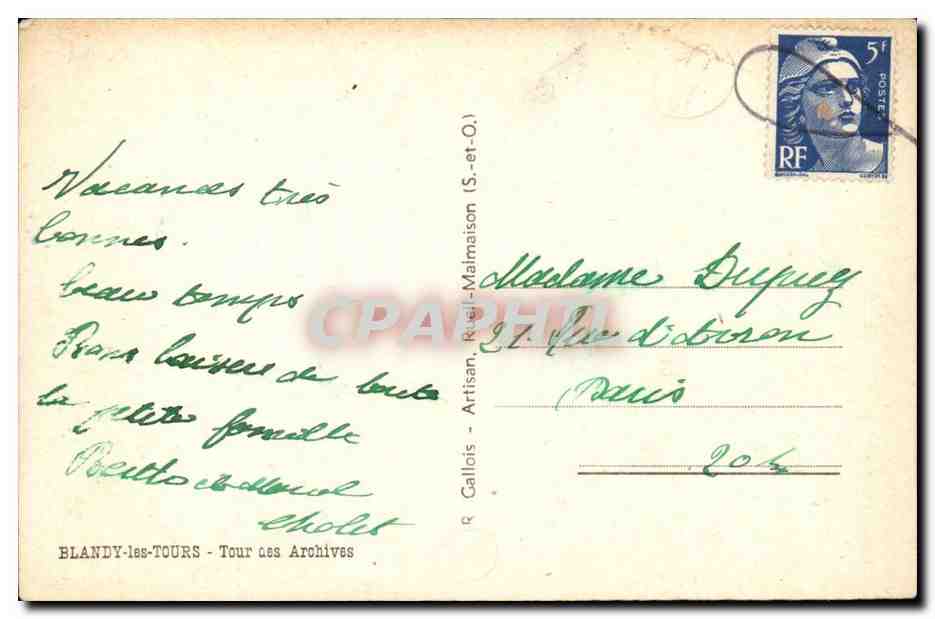 Vacances très
bonnes.
beau temps
Bons baisers de toute
la petite famille
Cholet
BLANDY-les-TOURS - Tour des Archives
R Gallois - Artisan, Rueil-Malmaison (S.-et-O.)
5f
POSTES
RF
Madame Dupuy
21 Rue d'Avron
Paris
20
CPAPHIL